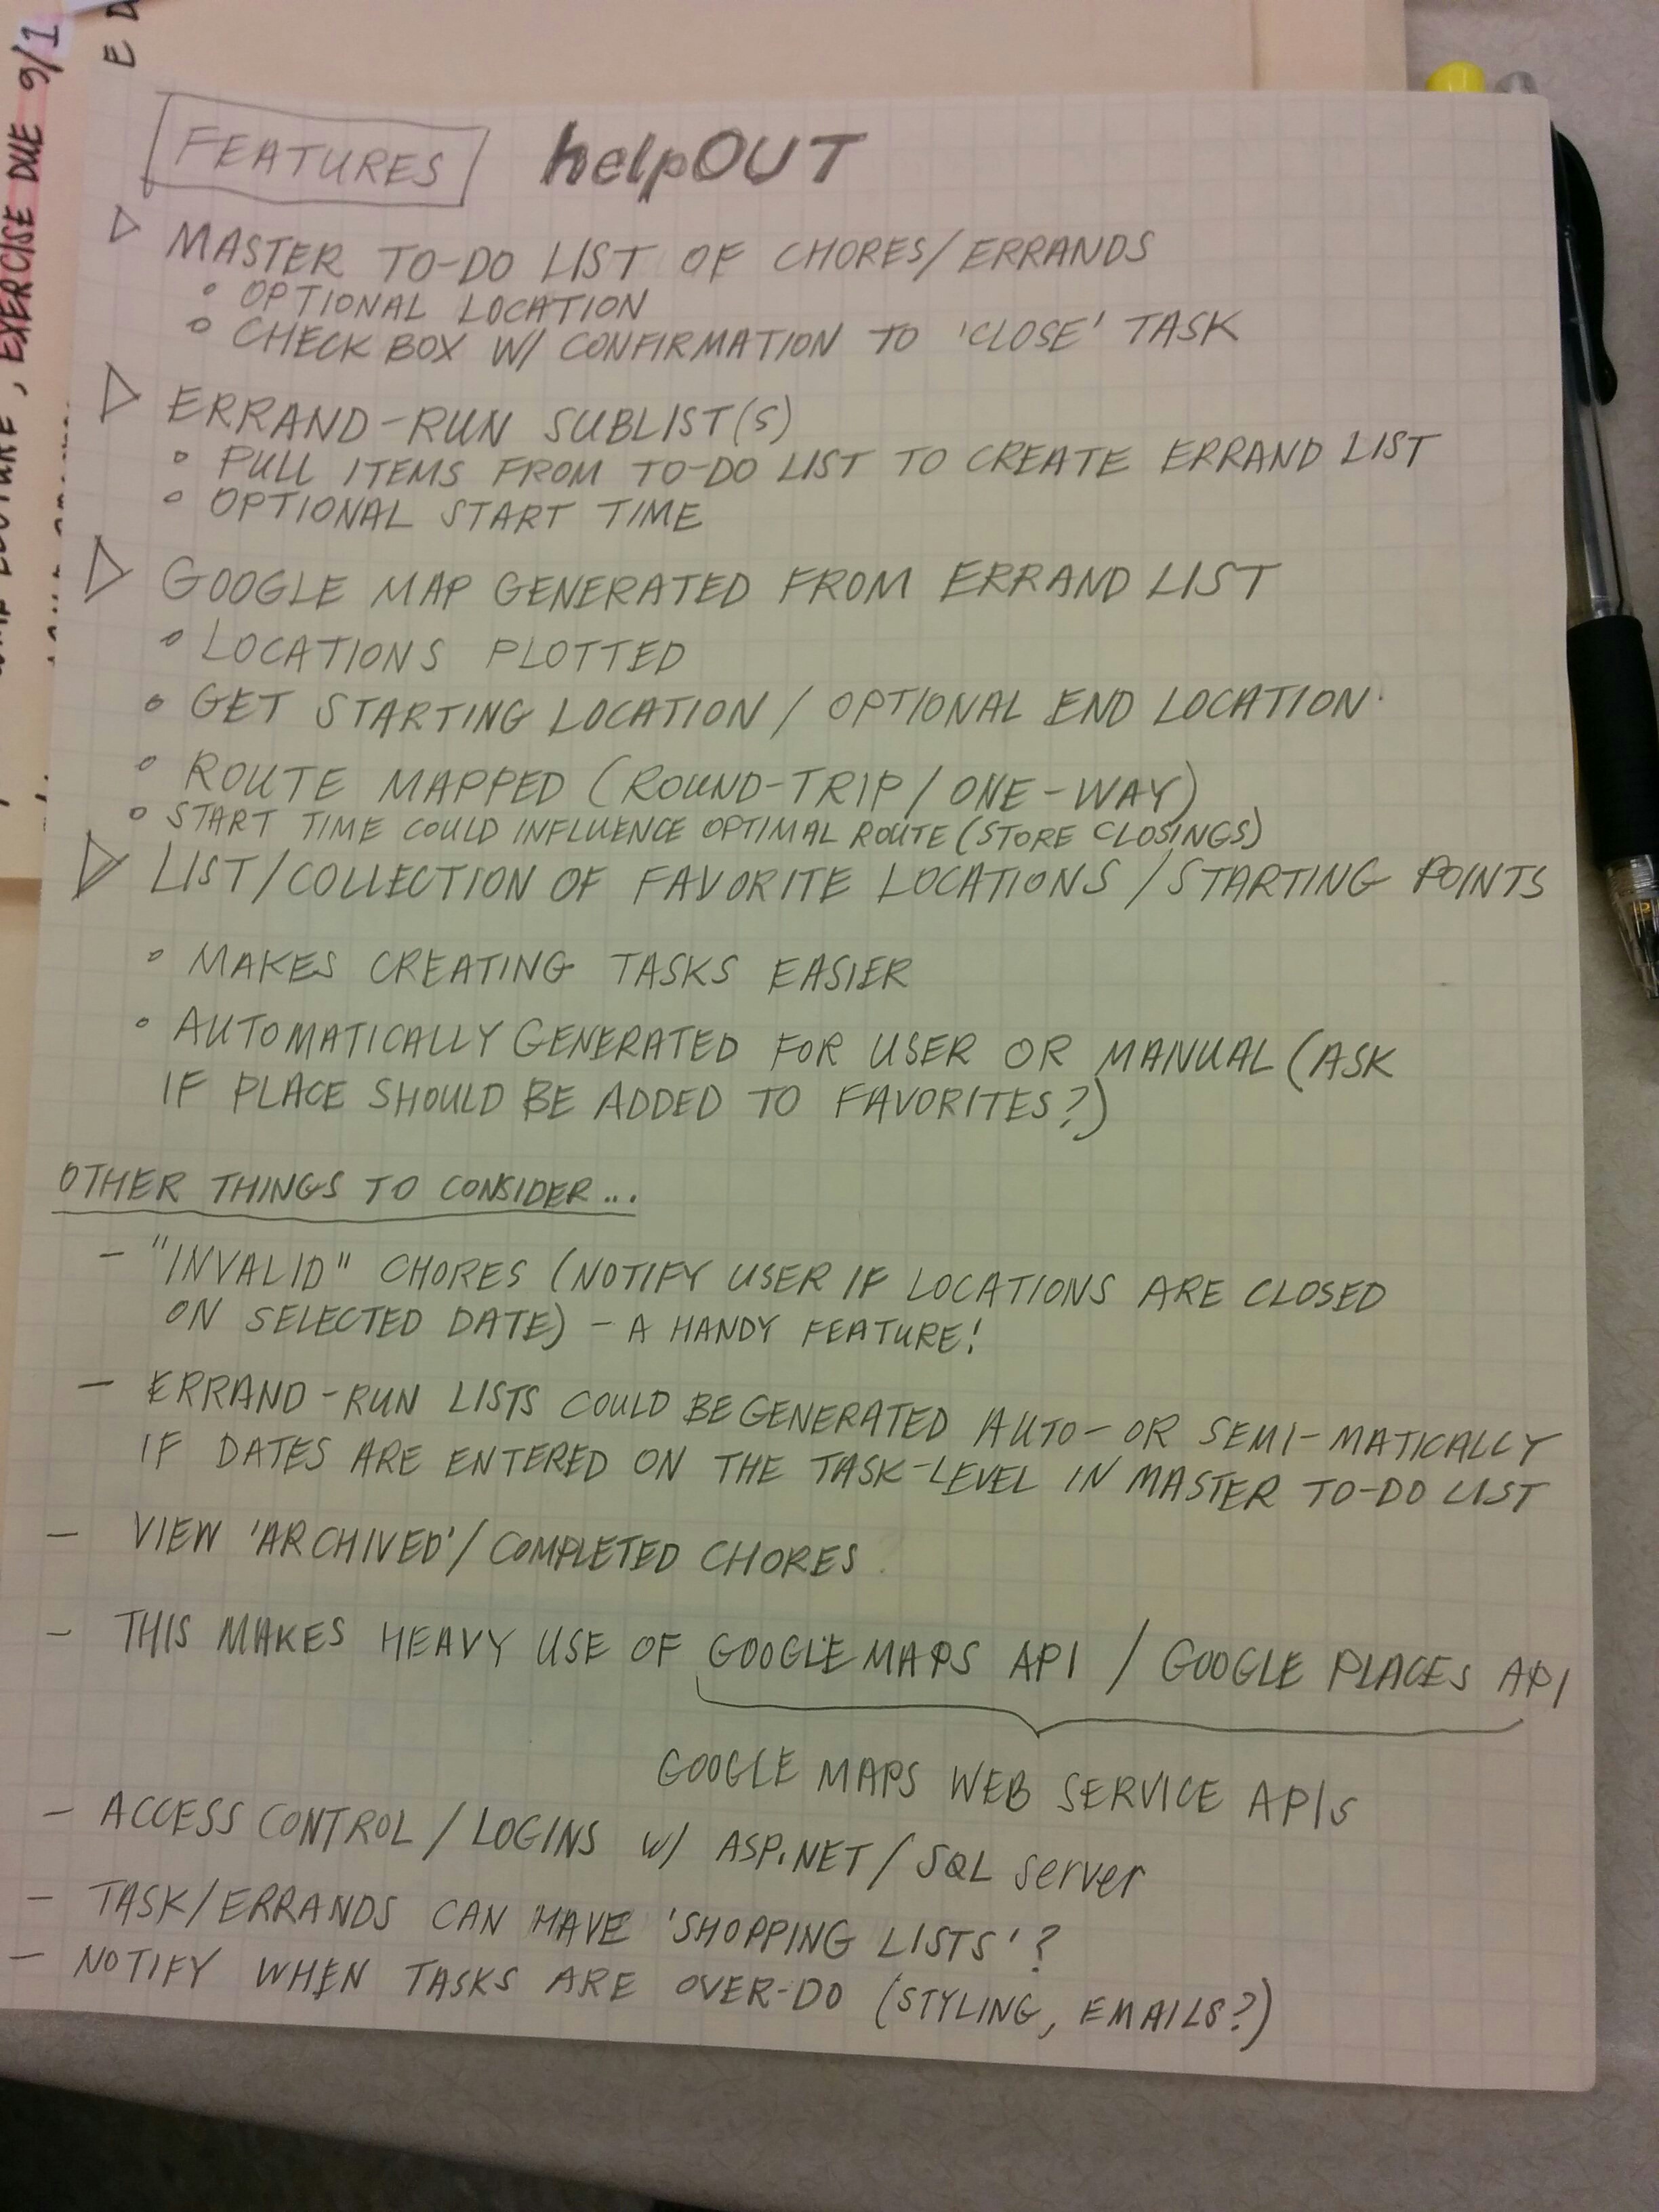 FEATURES helpOUT
▷ MASTER TO-DO LIST OF CHORES/ERRANDS
° OPTIONAL LOCATION
° CHECK BOX W/ CONFIRMATION TO 'CLOSE' TASK
▷ ERRAND-RUN SUBLIST(S)
° PULL ITEMS FROM TO-DO LIST TO CREATE ERRAND LIST
° OPTIONAL START TIME
▷ GOOGLE MAP GENERATED FROM ERRAND LIST
° LOCATIONS PLOTTED
° GET STARTING LOCATION / OPTIONAL END LOCATION
° ROUTE MAPPED (ROUND-TRIP / ONE-WAY)
° START TIME COULD INFLUENCE OPTIMAL ROUTE (STORE CLOSINGS)
▷ LIST/COLLECTION OF FAVORITE LOCATIONS / STARTING POINTS
° MAKES CREATING TASKS EASIER
° AUTOMATICALLY GENERATED FOR USER OR MANUAL (ASK
IF PLACE SHOULD BE ADDED TO FAVORITES?)
OTHER THINGS TO CONSIDER...
- "INVALID" CHORES (NOTIFY USER IF LOCATIONS ARE CLOSED
ON SELECTED DATE) - A HANDY FEATURE!
- ERRAND-RUN LISTS COULD BE GENERATED AUTO- OR SEMI-MATICALLY
IF DATES ARE ENTERED ON THE TASK-LEVEL IN MASTER TO-DO LIST
- VIEW 'ARCHIVED'/COMPLETED CHORES
- THIS MAKES HEAVY USE OF GOOGLE MAPS API / GOOGLE PLACES API
GOOGLE MAPS WEB SERVICE APIs
- ACCESS CONTROL / LOGINS w/ ASP.NET / SQL server
- TASK/ERRANDS CAN HAVE 'SHOPPING LISTS'?
- NOTIFY WHEN TASKS ARE OVER-DO (STYLING, EMAILS?)
LECTURE, EXERCISE DUE 9/1